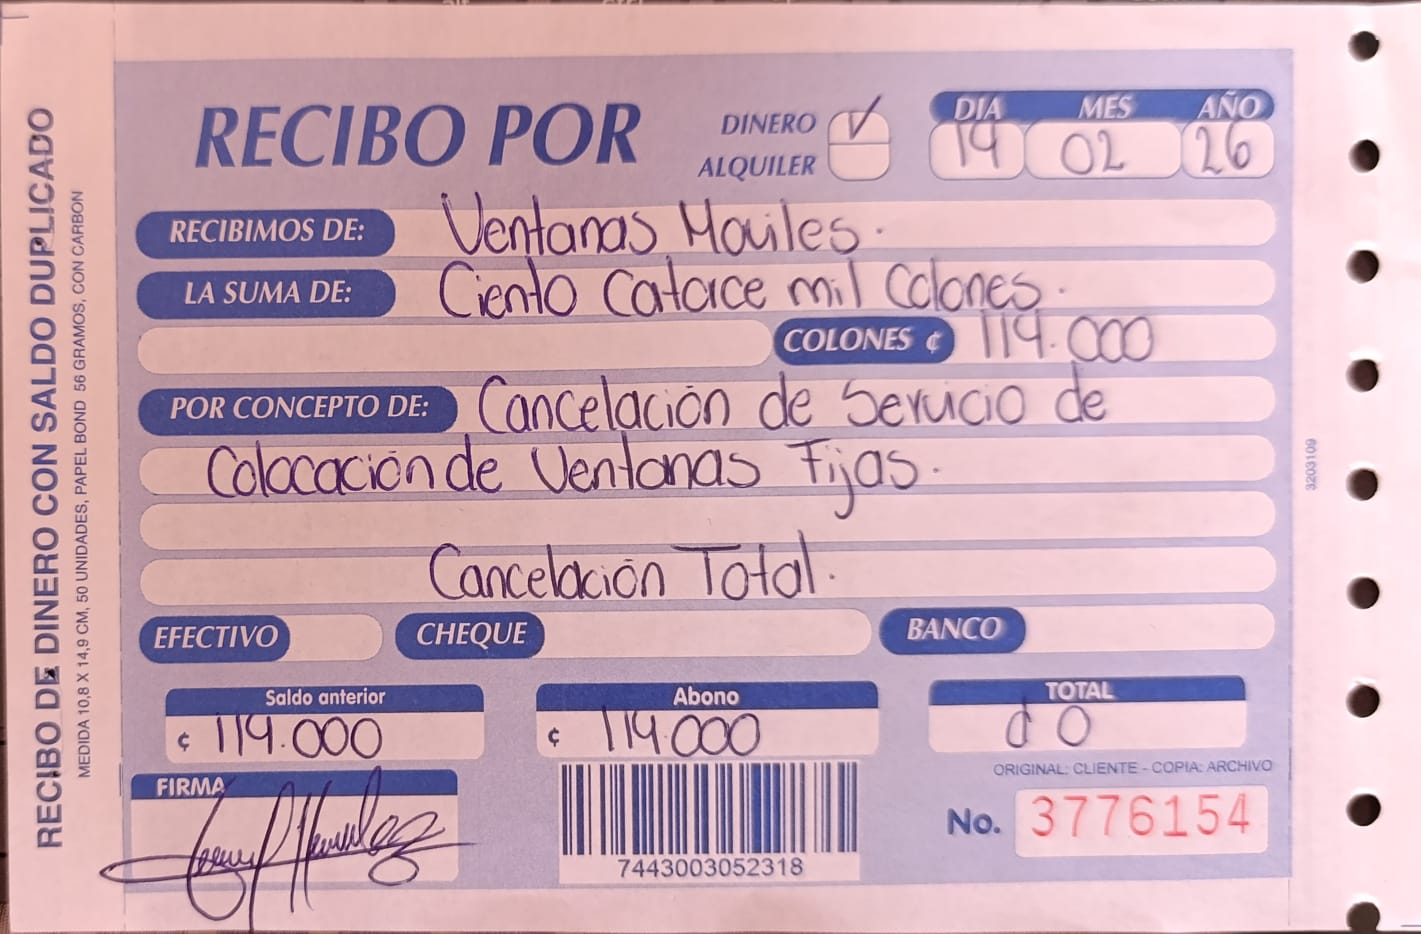 RECIBO POR
DINERO ✓
ALQUILER
DIA MES AÑO
14 02 26
RECIBIMOS DE: Ventanas Moviles.
LA SUMA DE: Ciento Catorce mil Colones.
COLONES ¢ 114.000
POR CONCEPTO DE: Cancelación de Servicio de
Colocación de Ventanas Fijas.
Cancelación Total.
EFECTIVO CHEQUE BANCO
Saldo anterior Abono TOTAL
¢ 114.000 ¢ 114.000 ¢ 0
ORIGINAL: CLIENTE - COPIA: ARCHIVO
FIRMA
No. 3776154
7443003052318
RECIBO DE DINERO CON SALDO DUPLICADO
MEDIDA 10,8 X 14,9 CM, 50 UNIDADES, PAPEL BOND 56 GRAMOS, CON CARBON
3203109